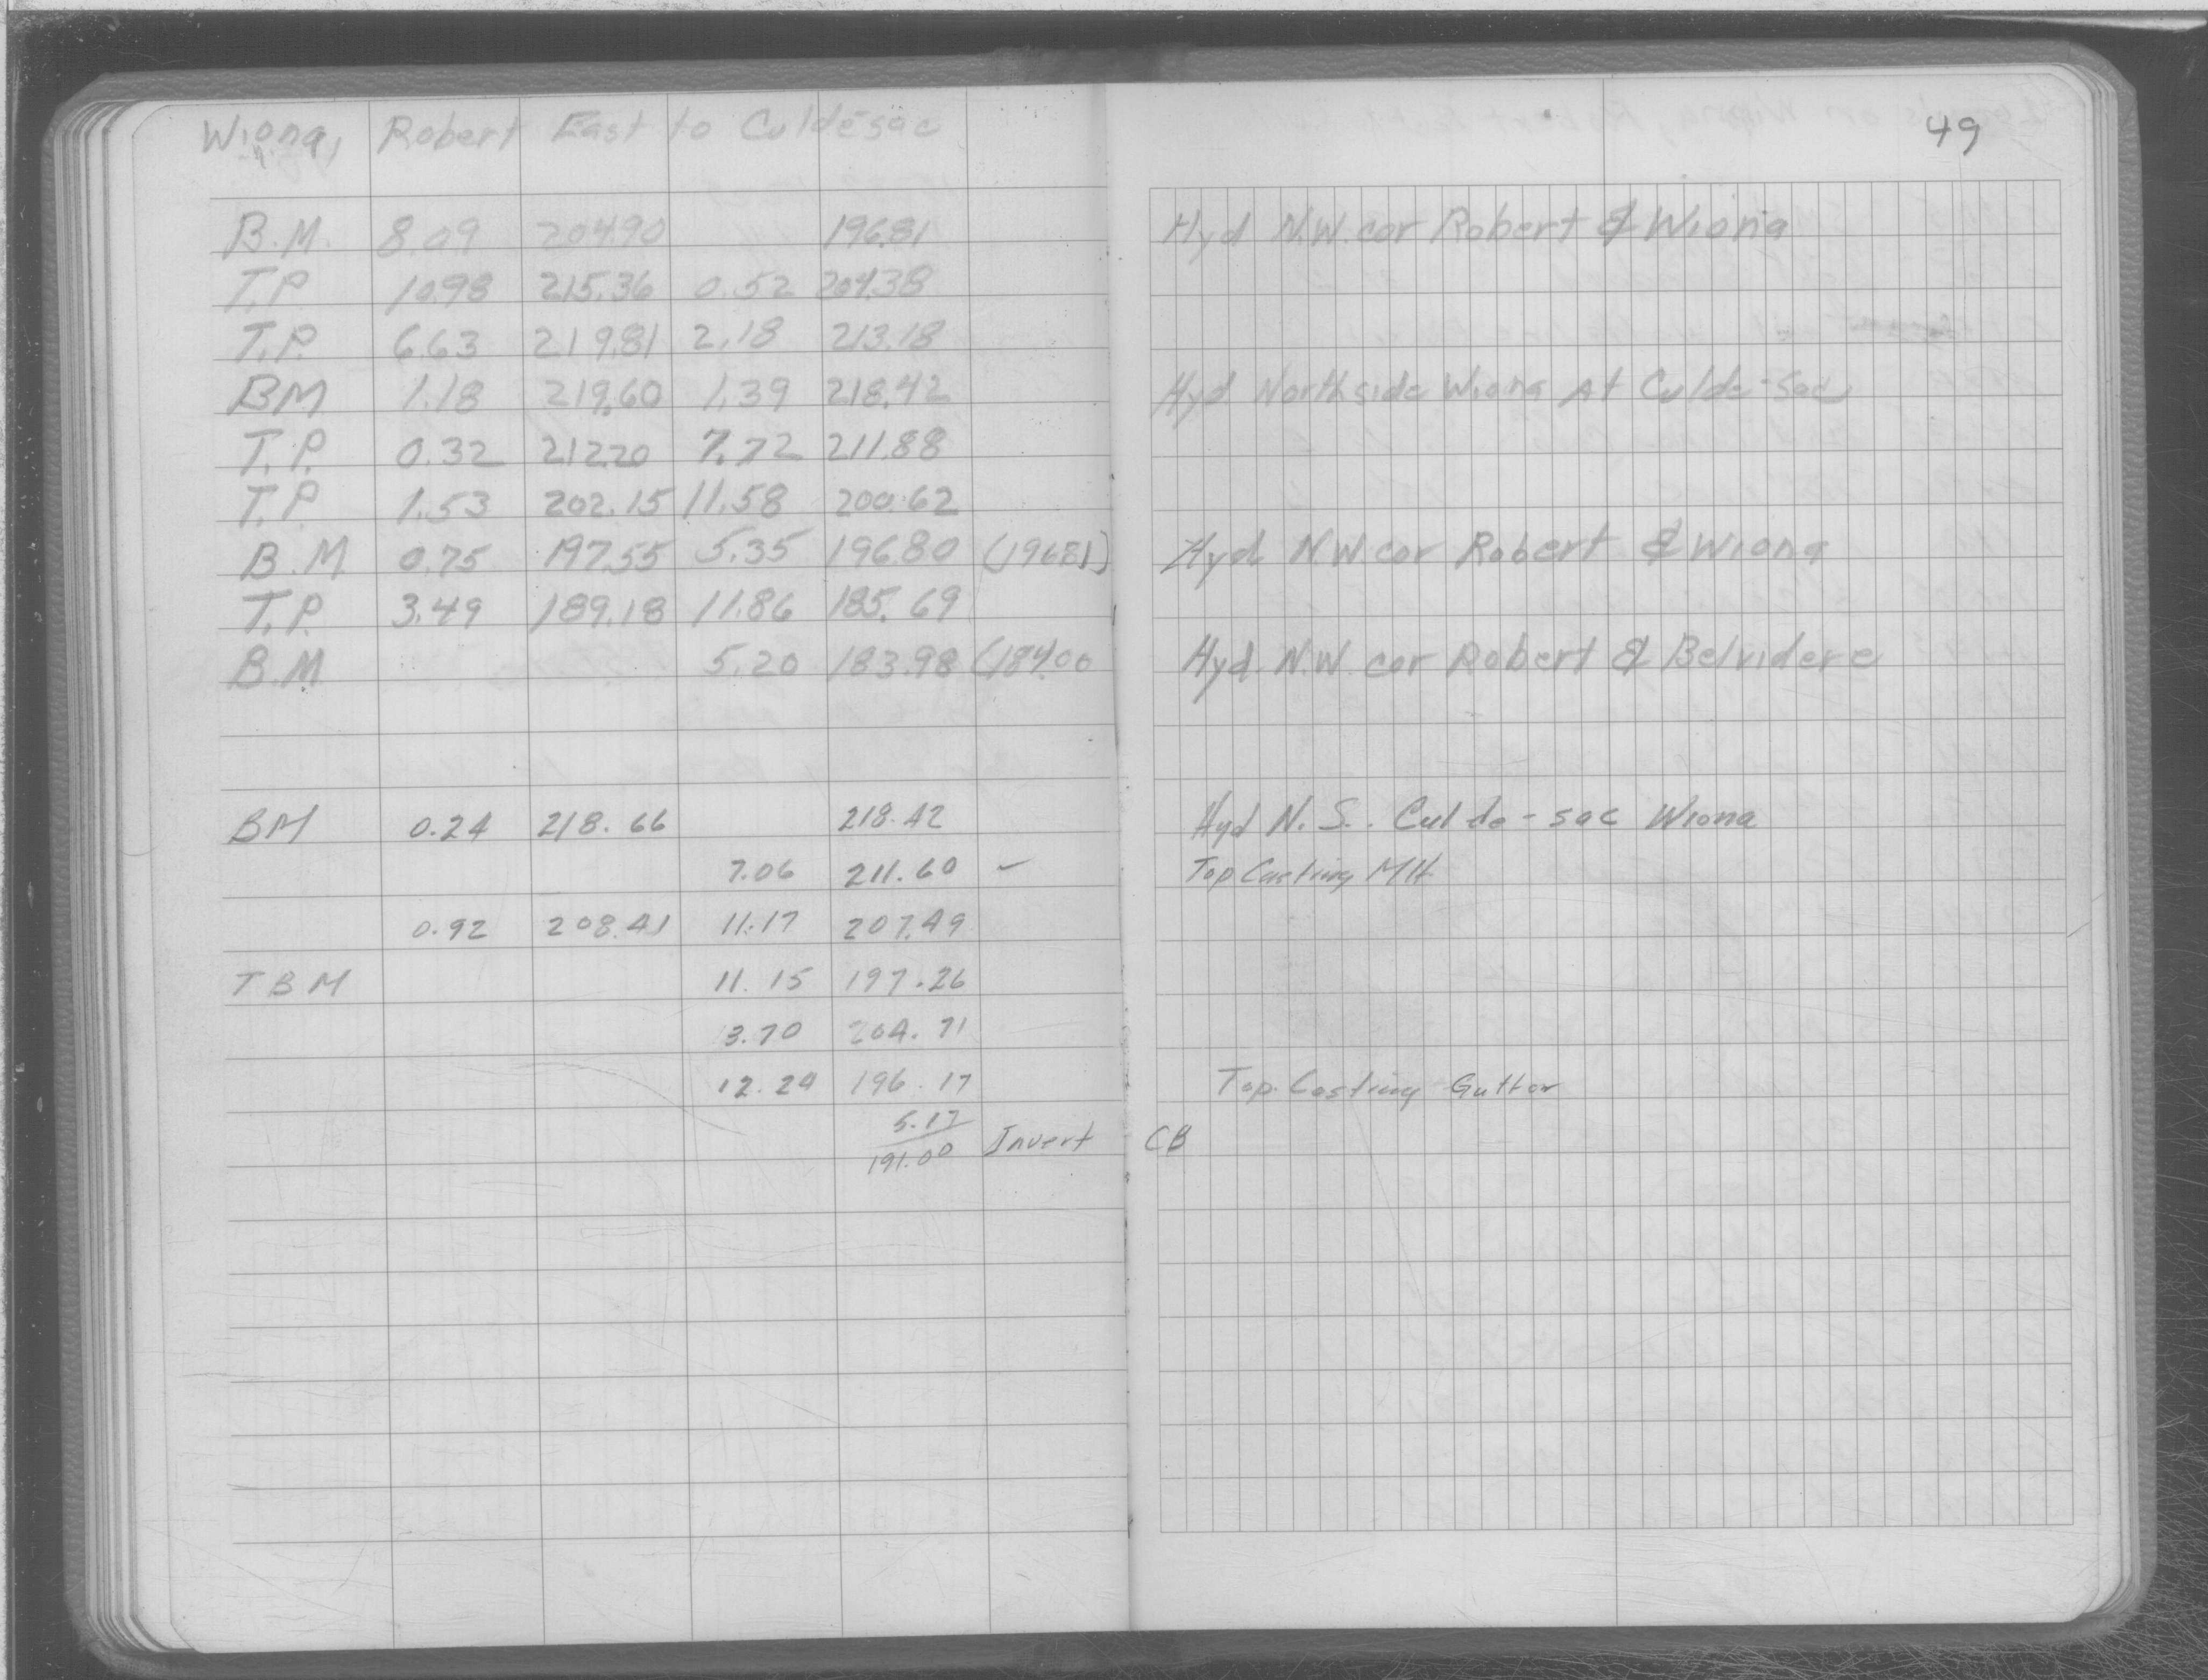 Wiona, Robert East to Culdesac
49
B.M. 8.09 204.90 196.81 Hyd N.W. cor Robert & Wiona
T.P. 10.98 215.36 0.52 204.38
T.P. 6.63 219.81 2.18 213.18
BM 1.18 219.60 1.39 218.42 Hyd Northside Wiona At Culde-Sac
T.P. 0.32 212.20 7.72 211.88
T.P 1.53 202.15 11.58 200.62
B.M 0.75 197.55 5.35 196.80 (196.81) Hyd N.W. cor Robert & Wiona
T.P. 3.49 189.18 11.86 185.69
B.M 5.20 183.98 (184.00 Hyd. N.W. cor Robert & Belvidere
BM 0.24 218.66 218.42 Hyd N.S. Cul de-sac Wiona
7.06 211.60 – Top Casting MH
0.92 208.41 11.17 207.49
TBM 11.15 197.26
3.70 204.71
12.24 196.17 Top Casting Gutter
5.17
191.00 Invert CB